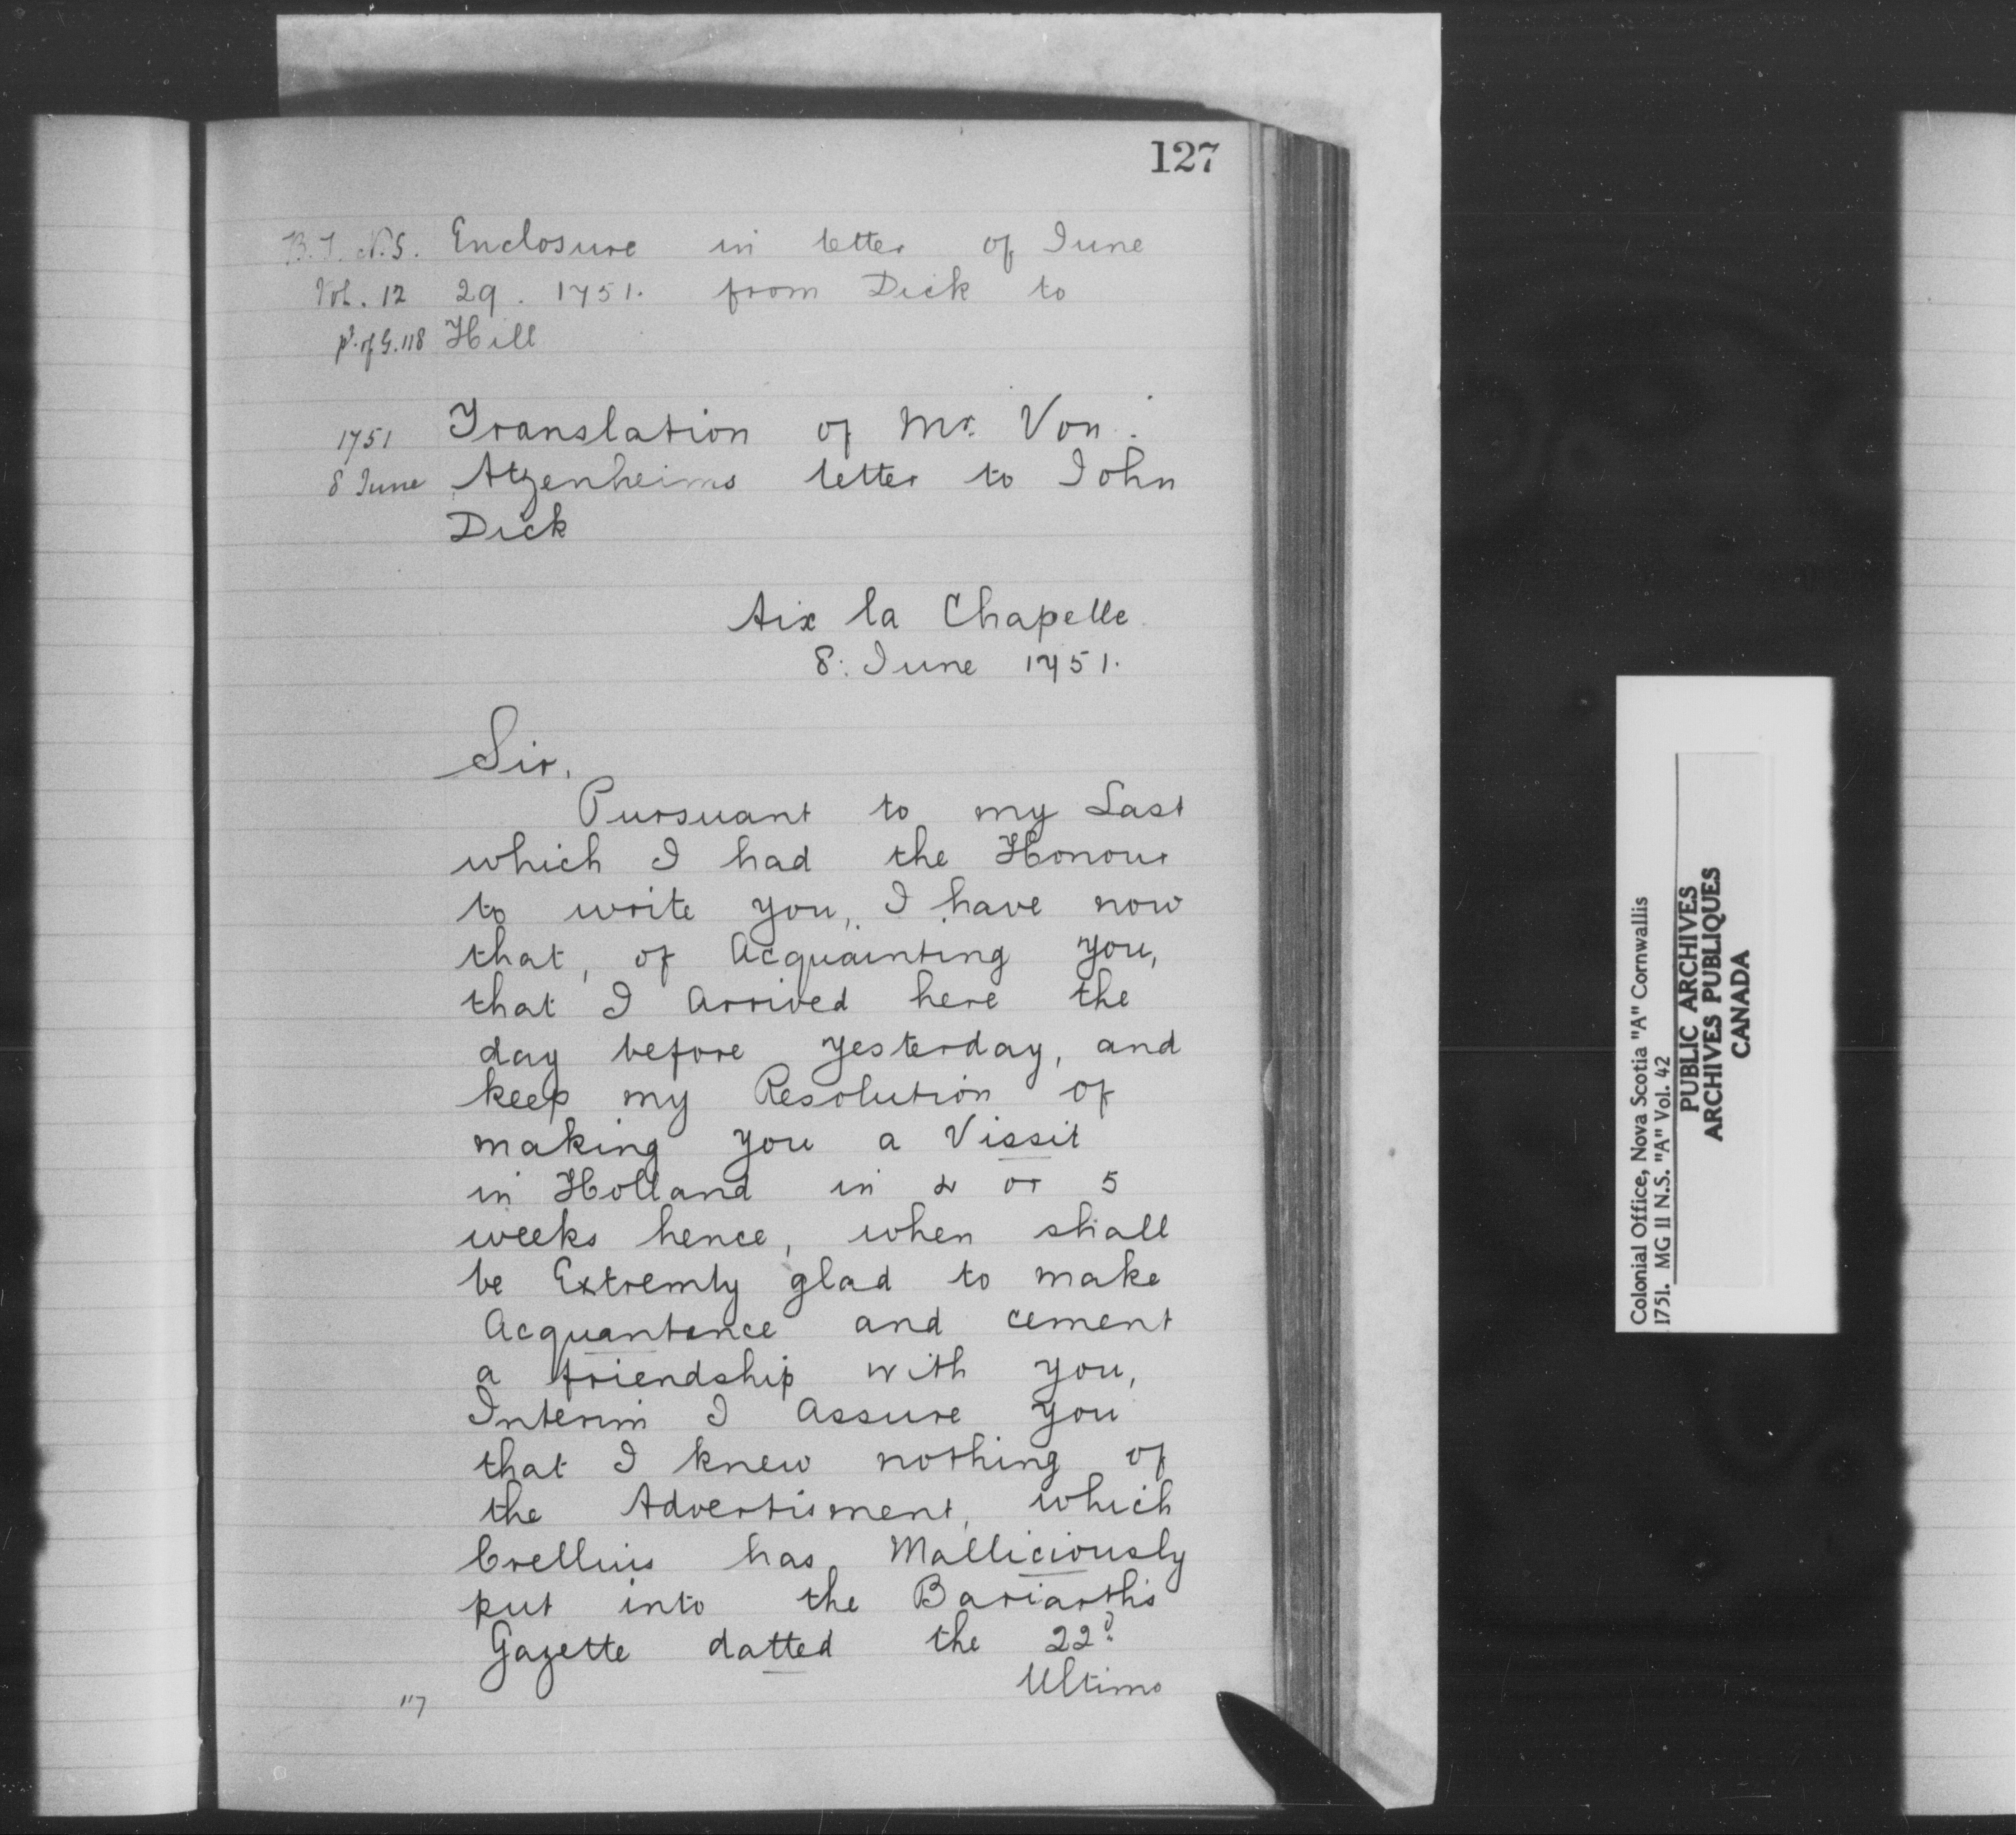 127
B.T. N.S. Enclosure in letter of June
Vol. 12 29. 1751. from Dick to
p. of G. 118 Hill
1751 Translation of Mr. Von
8 June Atzenheims letter to John
Dick
Aix la Chapelle
8: June 1751.
Sir,
Pursuant to my Last
which I had the Honour
to write you, I have now
that, of Acquainting you,
that I Arrived here the
day before yesterday, and
keep my Resolution of
making you a Vissit
in Holland in 4 or 5
weeks hence, when shall
be Extremly glad to make
Acquantance and cement
a friendship with you,
Interim I Assure you
that I knew nothing of
the Advertisment, which
Crellius has Malliciously
put into the
Gazette datted the 22d
Ultimo
117
Colonial Office, Nova Scotia "A" Cornwallis
1751. MG 11 N.S. "A" Vol. 42
PUBLIC ARCHIVES
ARCHIVES PUBLIQUES
CANADA